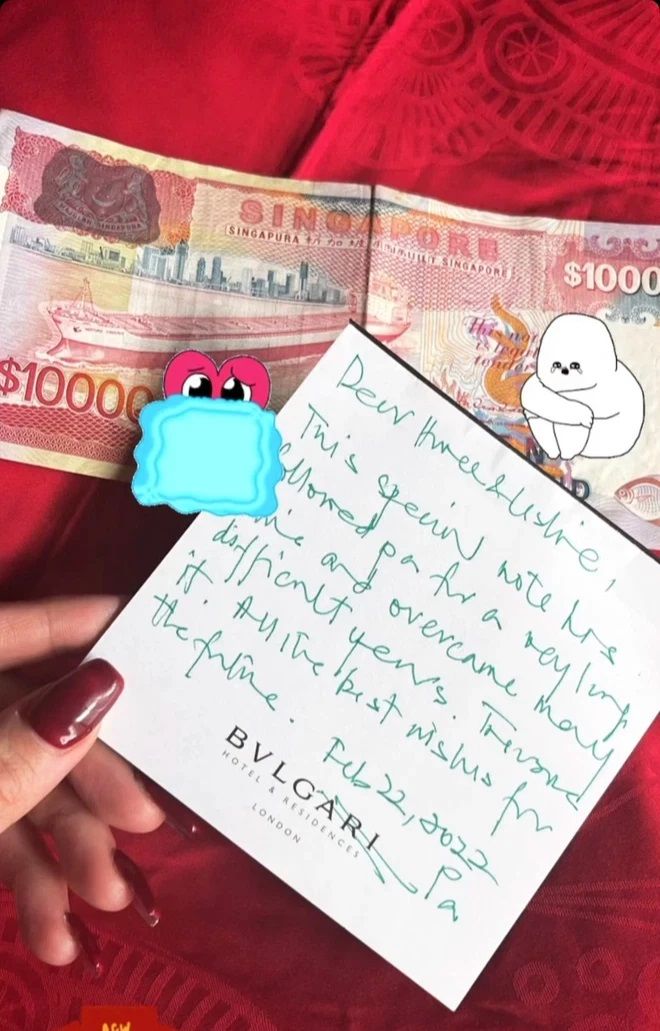 SINGAPORE
SINGAPURA
SINGAPORE
$1000
$10000
This note
is legal
tender
Dear
This special note has
followed pa for a very long
time and overcame many
difficult years. Treasure
it. All the best wishes for
the future.
Feb 22, 2022
Pa
BVLGARI
HOTEL & RESIDENCES
LONDON